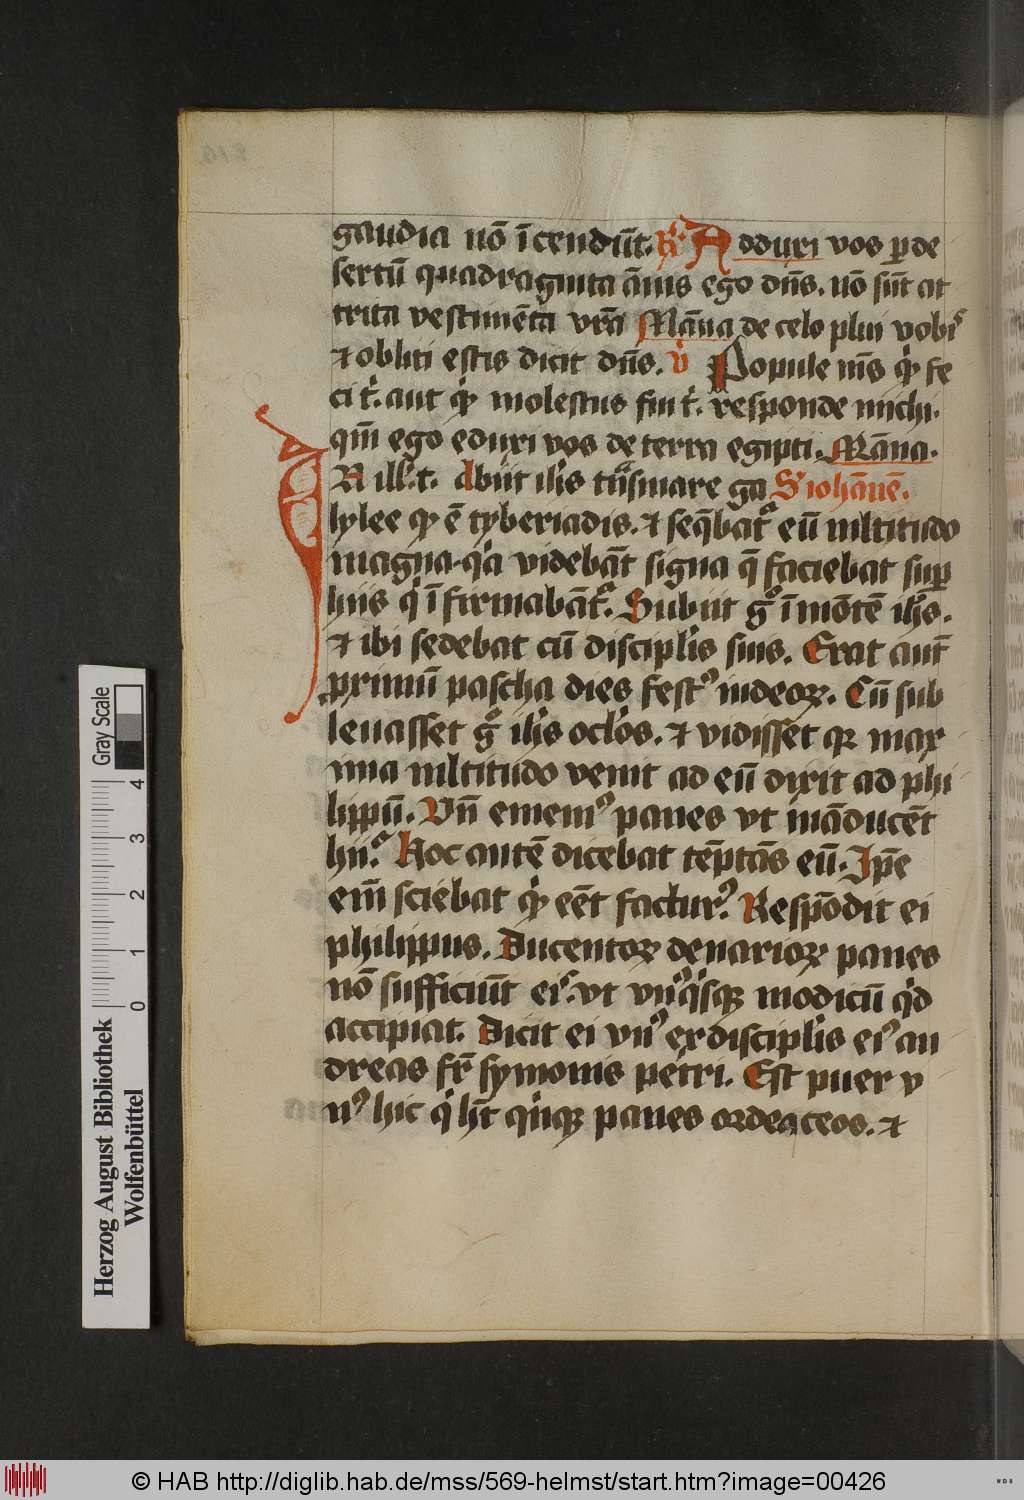 gaudia nō īcendūt. R̸. Adduxi vos ꝑ de
sertū quadraginta ānis ego dn̄s. nō sūt at
trita vestimēta vr̄a Māna de celo plui vobꝭ
⁊ obliti estis dicit dn̄s. v̇ Popule m̄s qͥd fe
ci tͥ. aut qͥd molestus fui tͥ. responde michi.
qm̄ ego eduxi vos de terra egipti. Māna.
IN ill̄.t. Abiit ih̄s tͣsmare ga S' iohānē.
lylee qd̄ ē tyberiadis. ⁊ seq̄batᷣ eū mltitudo
magna. qͥa videbāt signa q̄ faciebat suꝑ
hiis qͥ īfirmabātᷣ. Subiit gͦ ī mōtē ih̄s.
⁊ ibi sedebat cū disciplis suis. Erat aut̄
primū pascha dies festꝰ iudeoꝝ. Cū sub
leuasset gͦ ih̄s oclos. ⁊ vidisset qꝛ max
ima mltitudo venit ad eū dixit ad phi
lippū. Vn̄ ememꝰ panes vt māducēt
hiiᷣ. Hoc autē dicebat tēptās eū. Ip̄e
em̄ sciebat qͥd eēt facturꝰ. Respōdit ei
philippus. Ducentoꝝ denarioꝝ panes
nō sufficiūt eiꝭ. vt vnꝰqͥsqꝫ modicū qͥd
accipiat. Dicit ei vnꝰ ex disciplis eiꝰ an
dreas fr̄ symonis petri. Est puer v
nꝰ hic qͥ ht̄ qͥnqꝫ panes ordeaceos. ⁊
Gray Scale
0 1 2 3 4
Herzog August Bibliothek
Wolfenbüttel
© HAB http://diglib.hab.de/mss/569-helmst/start.htm?image=00426